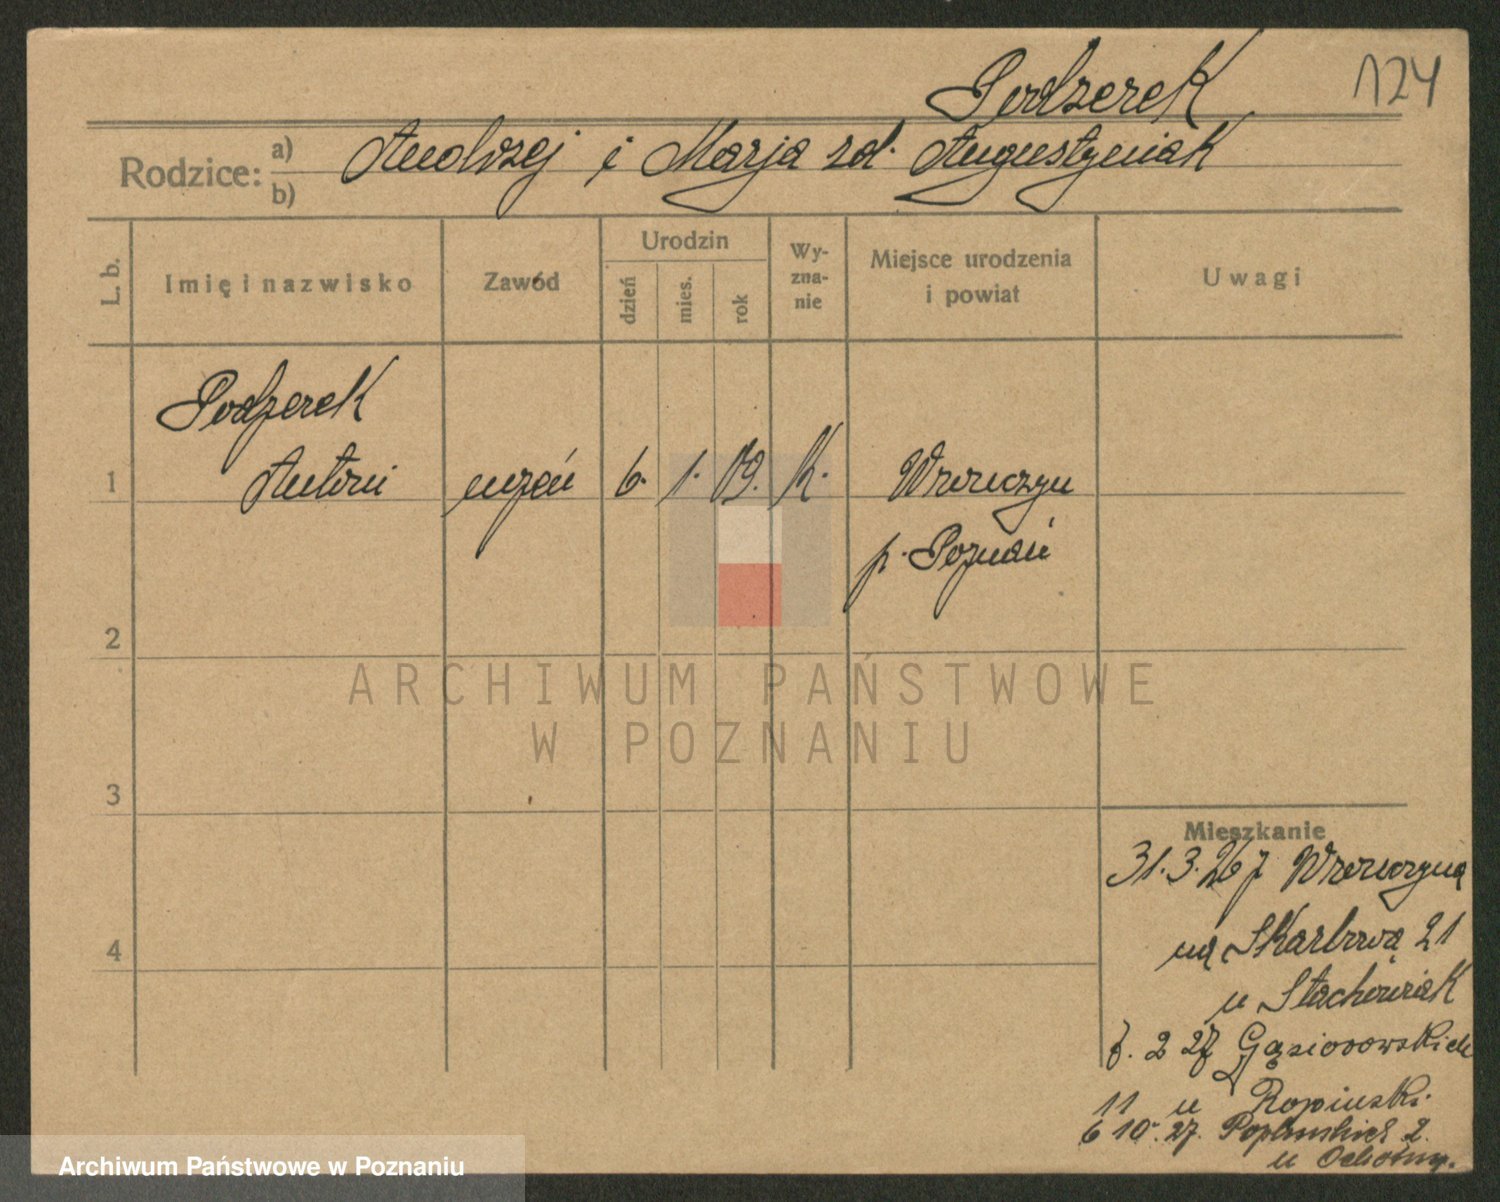 Podzerek
124
Rodzice: a) b)
Andrzej i Marja zd. Augustyniak
L. b.
Imię i nazwisko
Zawód
Urodzin
dzień
mies.
rok
Wy-
zna-
nie
Miejsce urodzenia
i powiat
Uwagi
Podzerek
1 Antoni uczeń 6. 1. 09. K. Wronczyn
p. Poznań
2
ARCHIWUM PAŃSTWOWE
W POZNANIU
3
Mieszkanie
31.3.26 z Wronczyna
na Skarbową 21
u Stachowiak
2 27 Gąsiorowskich
11 u Ropinski.
6 10. 27.
2.
u
4
Archiwum Państwowe w Poznaniu